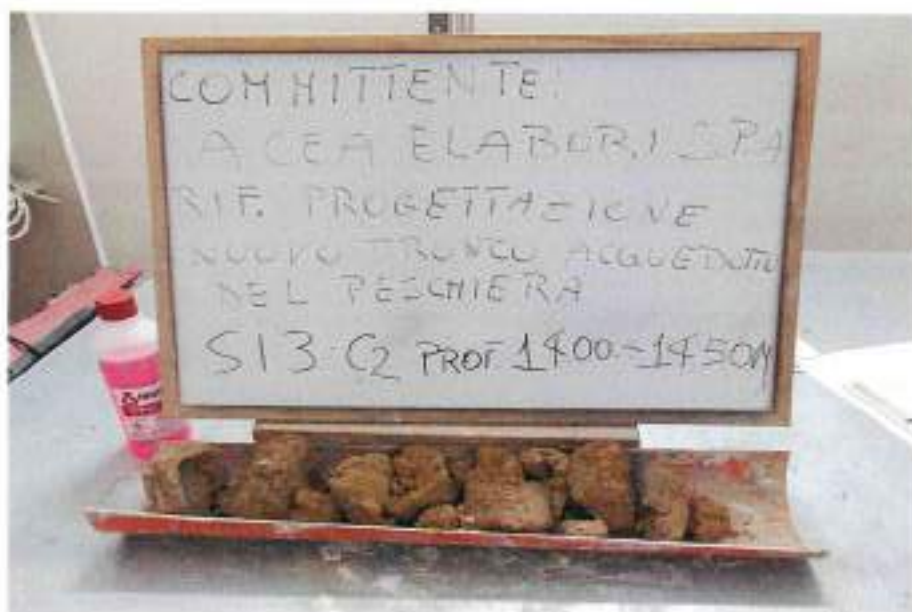 COMMITTENTE:
ACEA ELABORI SPA
RIF. PROGETTAZIONE
NUOVO TRONCO ACQUEDOTTO
DEL PESCHIERA
S13-C2 PROF 14.00-14.50M